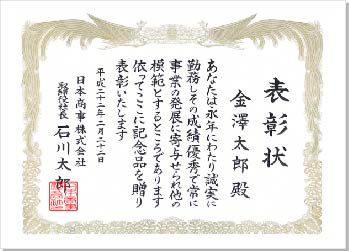 表彰状
金澤太郎殿
あなたは永年にわたり誠実に
勤務しその成績優秀で常に
事業の発展に寄与せられ他の
模範とするところであります
依ってここに記念品を贈り
表彰いたします
平成二十二年二月二十二日
日本商事株式会社
取締役社長 石川太郎